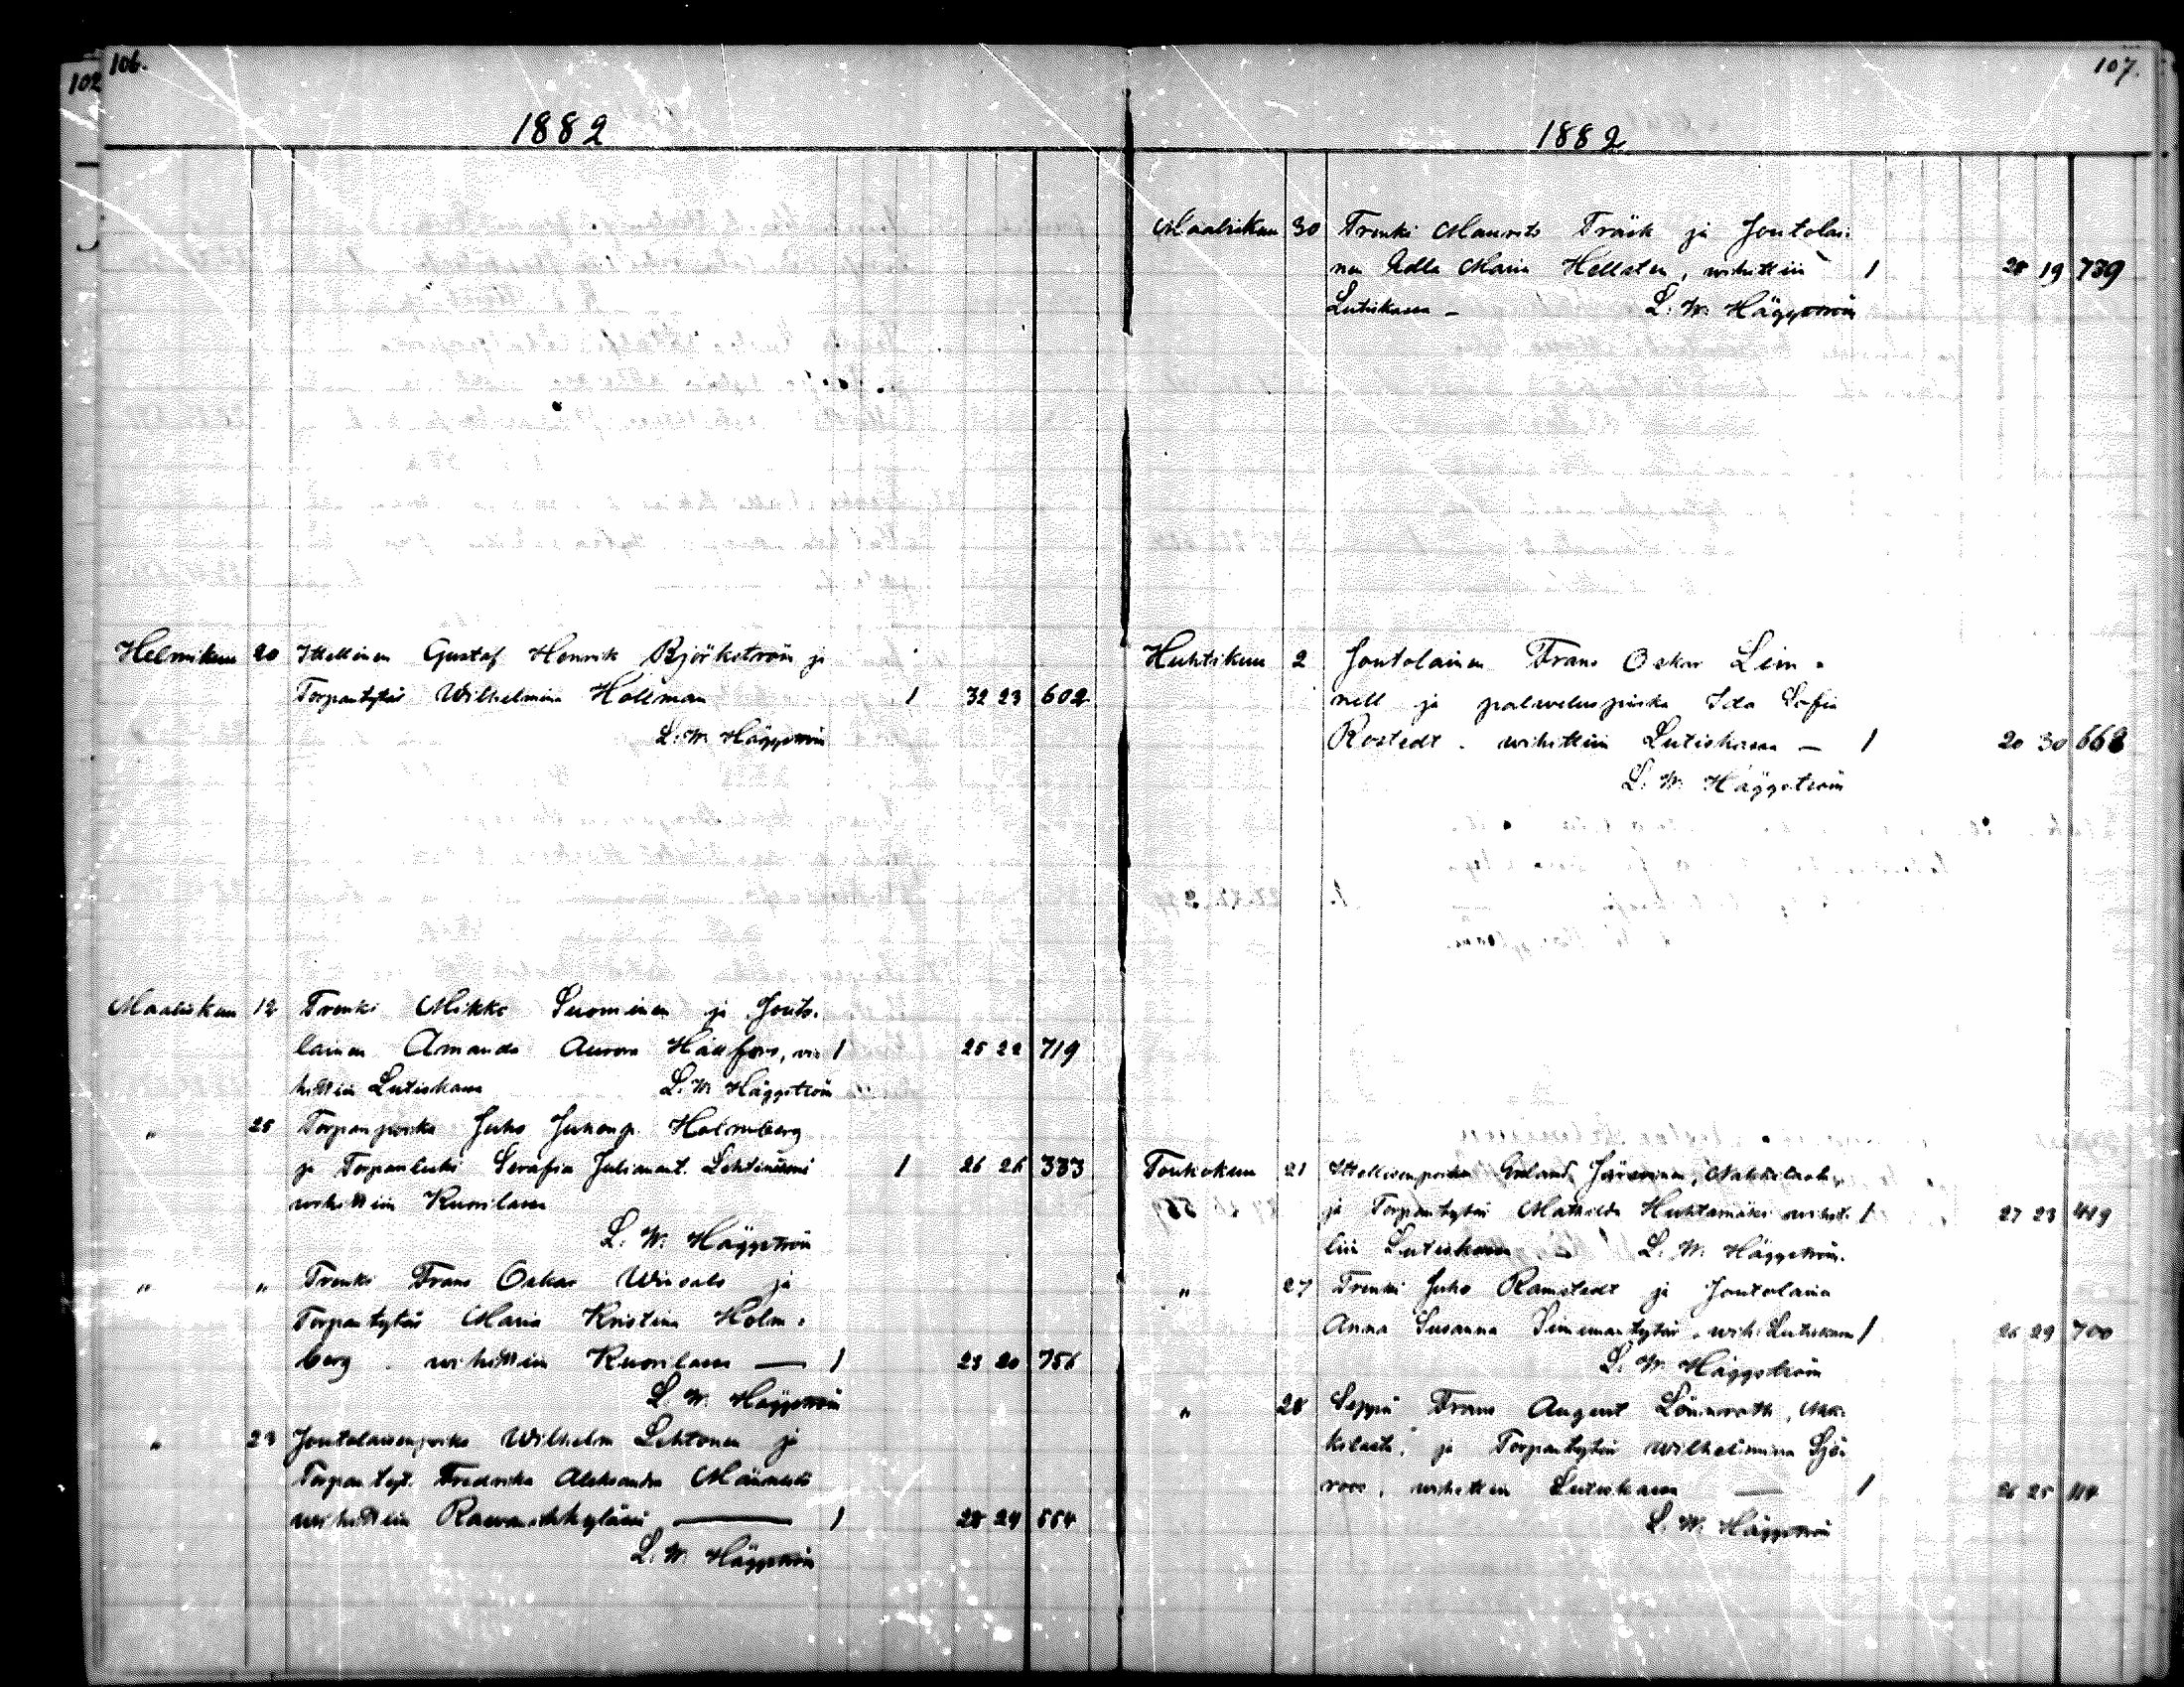 102
106.
1882
Helmikuu 20 Itellinen Gustaf Henrik Björkström ja
Torpantytär Wilhelmina Hollman 1 32 23 602
L. W. Häggström
Maaliskuu 12 Trenki Mikko Suominen ja Jouto-
lainen Amanda Aurora Hällfors, wi- 1 25 22 719
hittiin Lutiskassa L. W. Häggström
" 25 Torpanpoika Juho Juhonp. Holmberg
ja Torpanleski Serafia Julianant. 1 26 26 333
wihittiin Kuorilassa
L. W. Häggström
" " Trenki Frans Oskar ja
Torpantytär Maria Kristina Holm-
berg. wihittiin Kuorilassa — 1 23 20 756
L. W. Häggström
" 23 Joutolaisenpoika Wilhelm Lehtonen ja
Torpantyt. Fredrika Aleksandra
wihittiin — 1 28 24 554
L. W. Häggström
107.
1882
Maaliskuu 30 Trenki Maurits Träsk ja Joutolai-
nen Edla Maria Hellsten, wihittiin 1 28 19 739
Lutiskassa — L. W. Häggström
Huhtikuu 2 Joutolainen Frans Oskar Lein-
nell ja palveluspiika Ida Sofia
Rostedt. wihittiin Lutiskassa — 1 20 30 668
L. W. Häggström
Toukokuu 21
ja Torpantytär Mathilda Huhtamäki wihit- 1 27 23 419
tiin Lutiskassa L. W. Häggström.
" 27 Trenki Juho Ramstedt ja Joutolainen
Anna Susanna Simemantytär. wih. Lutiskassa 1 26 29 700
L. W. Häggström
" 28 Seppä Frans August Lönnroth,
ja Torpantytär Wilhelmina Sjö-
roos, wihittiin Lutiskassa — 1 26 25
L. W. Häggström